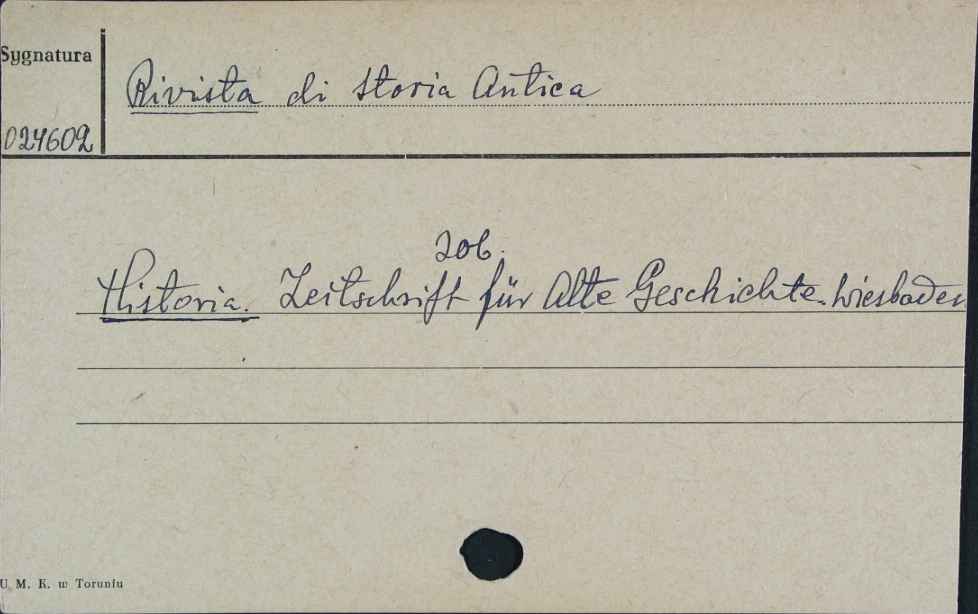 Sygnatura
Rivista di Storia Antica
024602
zob.
Historia. Zeitschrift für Alte Geschichte. Wiesbaden
U. M. K. w Toruniu